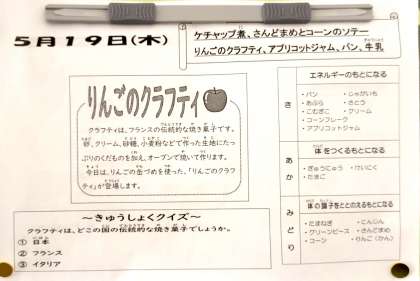 5月19日(木)
ケチャップ煮、さんどまめとコーンのソテー
りんごのクラフティ、アプリコットジャム、パン、牛乳
りんごのクラフティ
クラフティは、フランスの伝統的な焼き菓子です。
卵、クリーム、砂糖、小麦粉などで作った生地にたっ
ぷりのくだものを加え、オーブンで焼いて作ります。
今日は、りんごの缶づめを使った、「りんごのクラフ
ティ」が登場します。
~きゅうしょくクイズ~
クラフティは、どこの国の伝統的な焼き菓子でしょうか。
① 日本
② フランス
③ イタリア
エネルギーのもとになる
き
・パン ・じゃがいも
・あぶら ・さとう
・こむぎこ ・クリーム
・コーンフレーク
・アプリコットジャム
体をつくるもとになる
あか
・ぎゅうにゅう ・けいにく
・たまご
体の調子をととのえるもとになる
みどり
・たまねぎ ・にんじん
・グリーンピース ・さんどまめ
・コーン ・りんご(かん)